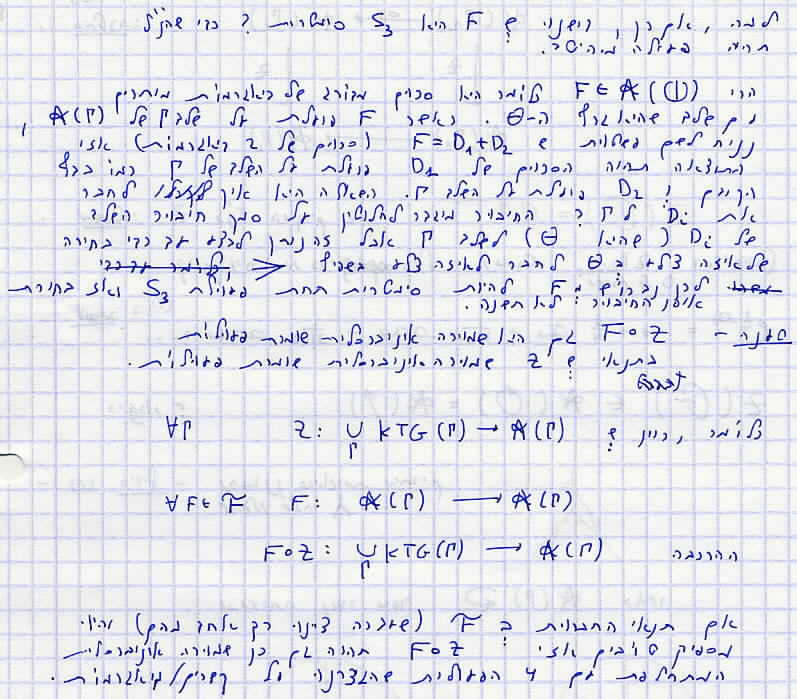 למה, אם כן, רצוי ש F היא S₃ סימטרית? כדי שהנ"ל
תהיה פעולה
הרי F ∈ A(⊖) כלומר היא סכום של דיאגרמות
גם שלב שהיא גרף ה-Θ. כאשר F פועלת על שלב Γ של A(Γ),
נניח לשם פשטות ש F = D₁ + D₂ (סכום של 2 דיאגרמות) אזי
התוצאה תהיה הסכום של D₁ פועלת על השלב של Γ כמו
הקודם ו D₂ פועלת על השלב Γ. השאלה היא איך לחבר
את Dᵢ ל Γ? החיבור מוגדר לחלוטין על סמך חיבור השלד
של Dᵢ (שהיא Θ) לשלב Γ אבל זה ניתן לבצע עד כדי בחירה
של איזה צלע ב Θ לחבר לאיזה צלע
לכן נבקש מ F להיות סימטרית תחת פעולת S₃ ואז בחירת
אופן החיבור לא תשנה.
טענה - F∘Z גם היא שמורה אוניברסלית שומרת פעולות
בתנאי ש Z שמורה אוניברסלית שומרת פעולות.
כלומר, כיון ש Z: ∪_Γ KTG(Γ) → A(Γ) ∀Γ
∀F∈𝓕 F: A(Γ) ⟶ A(Γ)
ההרכבה F∘Z: ∪_Γ KTG(Γ) → A(Γ)
אם תנאי החברות ב 𝓕 (שעברה צינוי רק אחד מהם) יהיו
מספיק טובים אזי F∘Z תהיה גם כן שמורה אוניברסלית
המתחלפת עם 4 הפעולות שהגדרנו על קשרים/דיאגרמות.